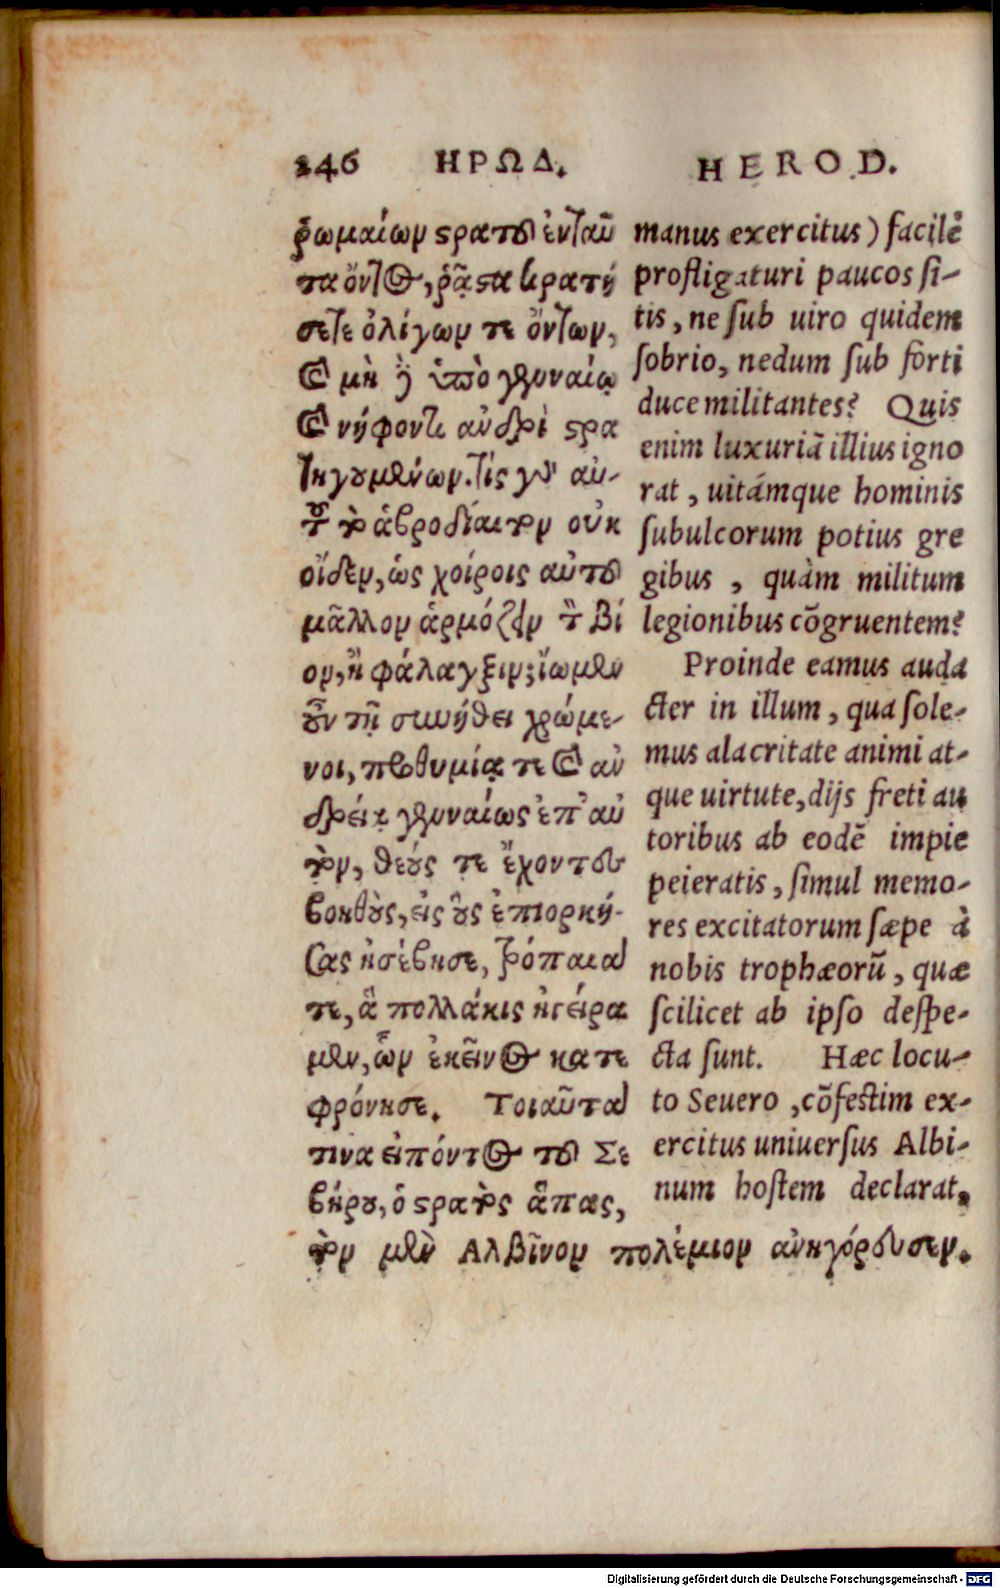 246 ΗΡΩΔ.
ῥωμαίων στρατοῦ ἐνταῦ
τα ὄντος, ῥᾷστα κρατή
σετε ὀλίγων τε ὄντων,
καὶ μὴ δὲ ὑπὸ γενναίῳ
καὶ νήφοντι ἀνδρὶ στρα
τηγουμένων. τίς γὰρ αὐ-
τοῦ τὸ ἁβροδίαιτον οὐκ
οἶδεν, ὡς χοίροις αὐτοῦ
μᾶλλον ἁρμόζειν τὸν βί
ον, ἢ φάλαγξιν; ἴωμεν
οὖν τῇ συνήθει χρώμε-
νοι, προθυμίᾳ τε καὶ ἀν
δρείᾳ γενναίως ἐπ' αὐ
τὸν, θεούς τε ἔχοντες
βοηθοὺς, εἰς οὓς ἐπιορκή-
σας ἠσέβησε, τρόπαιά
τε, ἃ πολλάκις ἠγείρα
μεν, ὧν ἐκεῖνος κατε
φρόνησε. Τοιαῦτά
τινα εἰπόντος τοῦ Σε
βήρου, ὁ στρατὸς ἅπας,
τὸν μὲν Αλβῖνον πολέμιον ἀνηγόρευσεν.
HEROD.
manus exercitus) facilè
profligaturi paucos si-
tis, ne sub uiro quidem
sobrio, nedum sub forti
duce militantes? Quis
enim luxuriā illius igno
rat, uitámque hominis
subulcorum potius gre
gibus, quàm militum
legionibus cōgruentem?
Proinde eamus auda
cter in illum, qua sole-
mus alacritate animi at-
que uirtute, dijs freti au
toribus ab eodē impie
peieratis, simul memo-
res excitatorum sæpe à
nobis trophæorū, quæ
scilicet ab ipso despe-
cta sunt. Hæc locu-
to Seuero, cōfestim ex-
ercitus uniuersus Albi-
num hostem declarat,
Digitalisierung gefördert durch die Deutsche Forschungsgemeinschaft - DFG